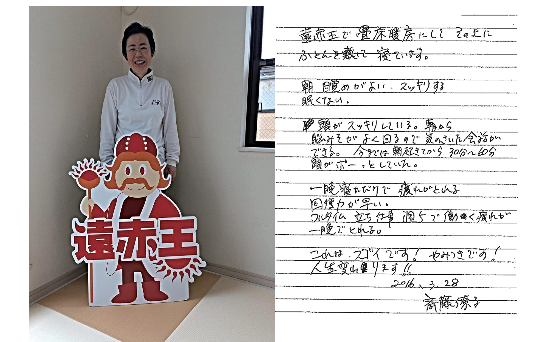 遠赤王
遠赤王で畳床暖房にして その上に
ふとんを敷いて寝ています。
朝 目覚めがよい、スッキリする
眠くない。
頭がスッキリしている。朝から
脳みそがよく回るので 気のきいた会話が
できる。今までは朝起きてから 30分〜60分
頭がボーっとしていた。
一晩寝ただけで 疲れがとれる
回復力が早い。
フルタイム 立ち仕事 働く疲れが
一晩でとれる。
これは、スゴイです! やみつきです!
人生変わります!!
2016. 3. 28